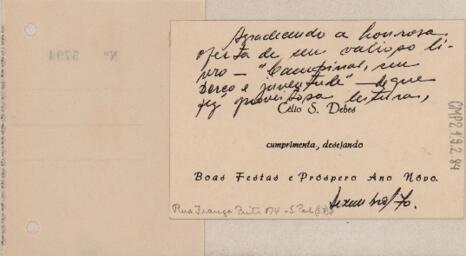 Nº 5794
Agradecendo a honrosa
oferta de seu valioso li-
vro – "Campinas, seu
berço e juventude" – de que
fez proveitosa leitura,
Célio S. Debes
cumprimenta, desejando
Boas Festas e Próspero Ano Novo.
Dezembro/70.
Rua França Pinto
CMP 2.1.9.2.84